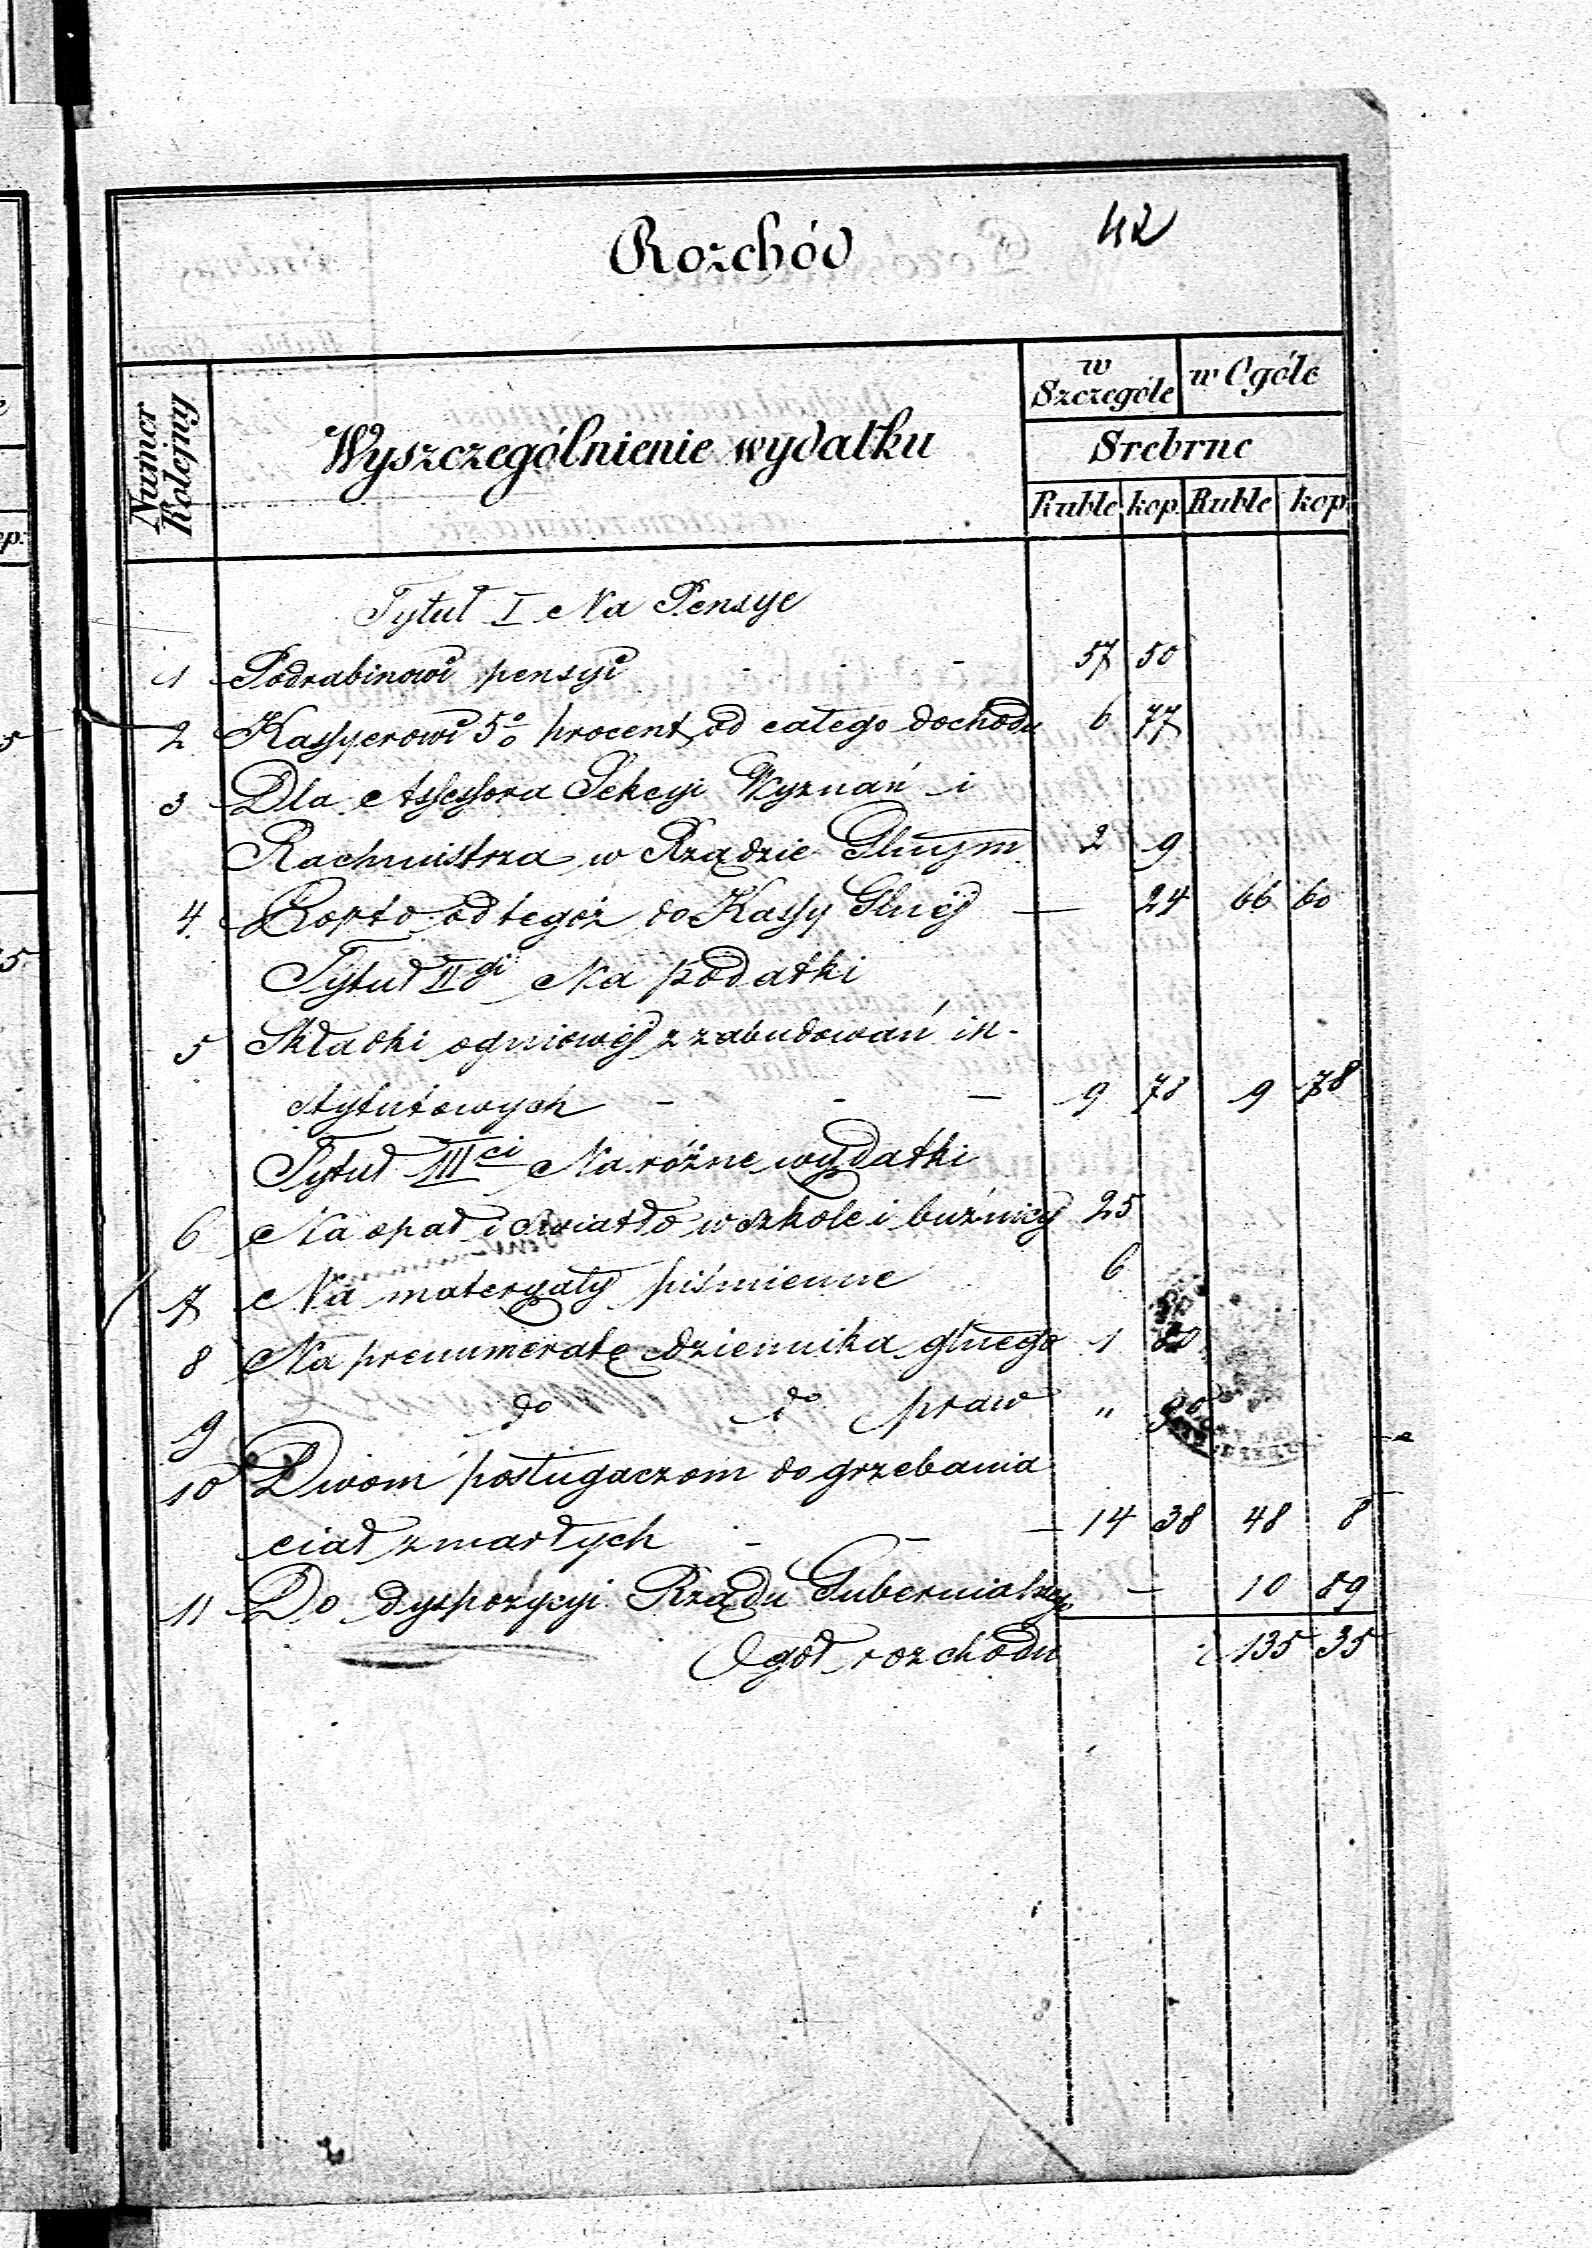 42
Rozchód
Numer Kolejny
Wyszczególnienie wydatku
w Szczególe
w Ogóle
Srebrne
Ruble kop. Ruble kop.
Tytuł I Na Pensye
1 Podrabinowi pensyi - - - 57 50
2 Kassyerowi 5% procent od całego dochodu 6 77
3 Dla Assessora Sekcyi Wyznań i
Rachmistrza w Rządzie Glnym 2 9
4. Porto od tegoż do Kassy Glnéj — 24 66 60
Tytuł IIgi Na podatki
5 Składki ogniowéj z zabudowań in-
stytutowych - - — 9 78 9 78
Tytuł IIIci Na różne wydatki
6 Na opał i światło w szkole i buźnicy 25
7 Na materyały piśmienne 6
8 Na prenumeratę dziennika glnego 1 80
9 do do praw " 90
10 Dwom posługaczom do grzebania
ciał zmarłych - - — 14 38 48 8
11 Do dyspozycyi Rządu Gubernialnego — 10 89
Ogół rozchodu 135 35